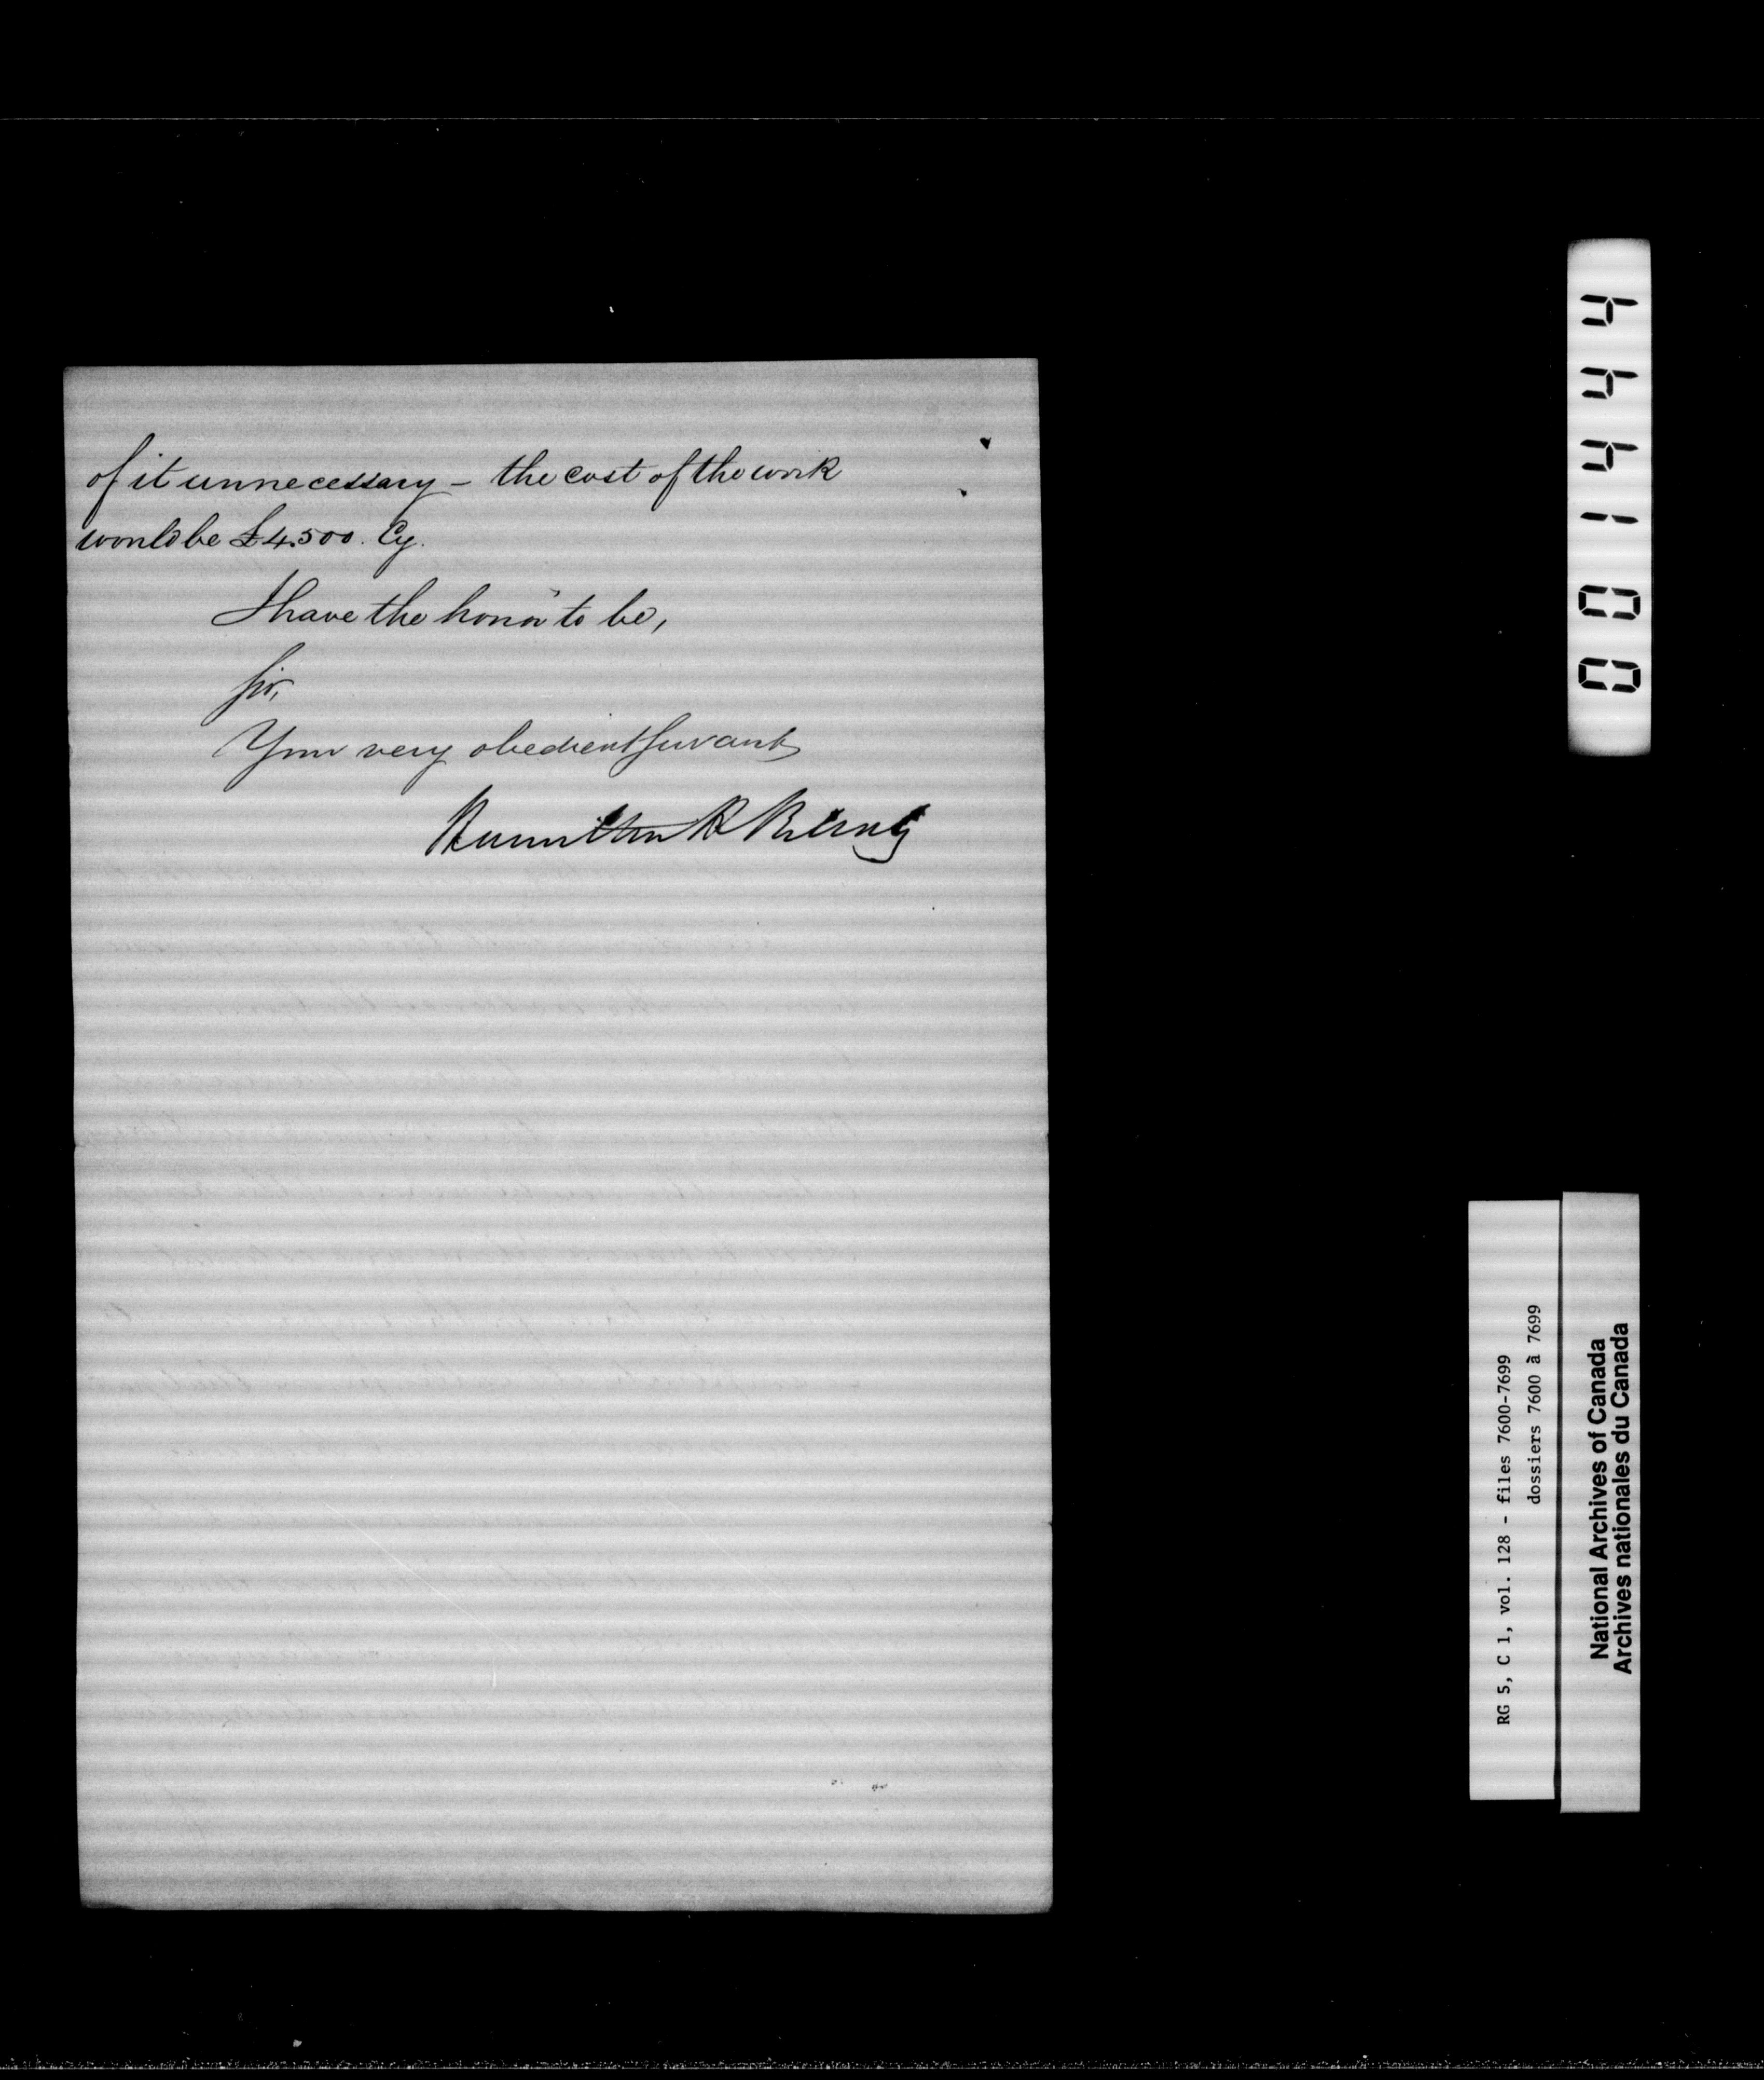 of it unnecessary – the cost of the work
would be £4.500. Cy.
I have the honor to be,
Sir,
Your very obedient Servant
Hamilton H Killaly
001444
RG 5, C 1, vol. 128 - files 7600-7699
dossiers 7600 à 7699
National Archives of Canada
Archives nationales du Canada